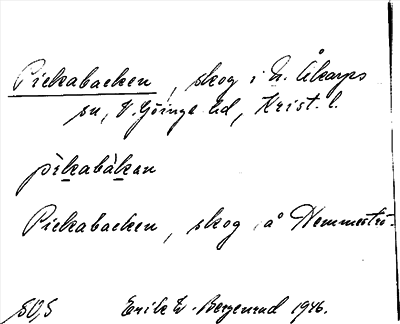 Pickabacken, skog i N. Åkarps
sn, V. Göinge hd, Krist. l.
pìkabàkan
Pickabacken, skog å Hemmestr-
Erik W. Bergenrud 1946.